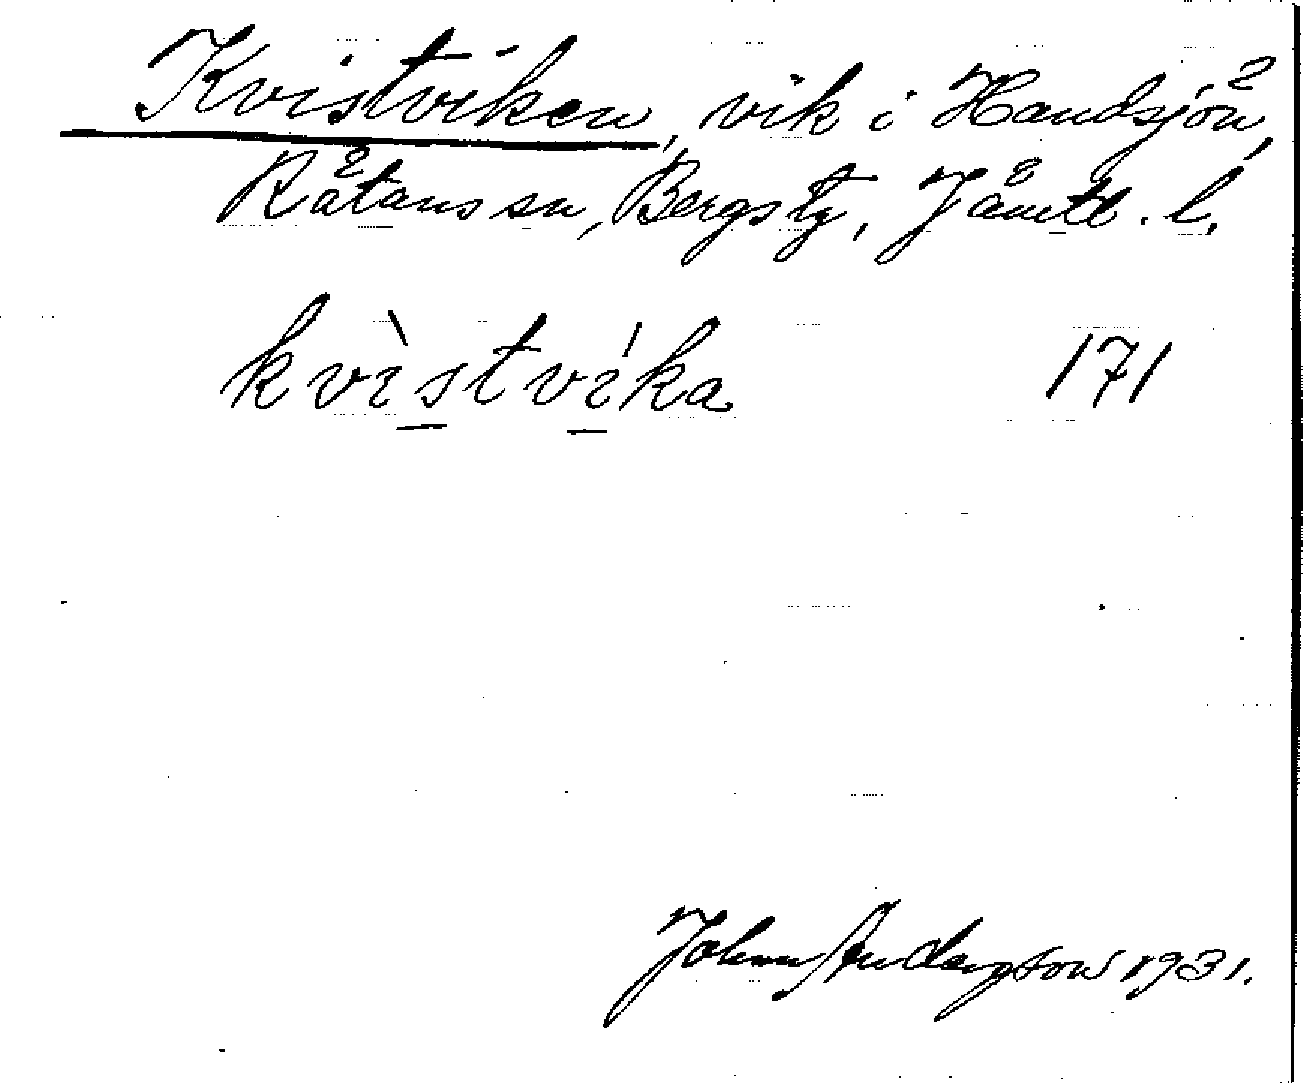 Kvistviken, vik i Handsjön,
Rätans sn, Bergs tg, Jämtl. l.
kvìstvíka 171
John Andersson 1931.